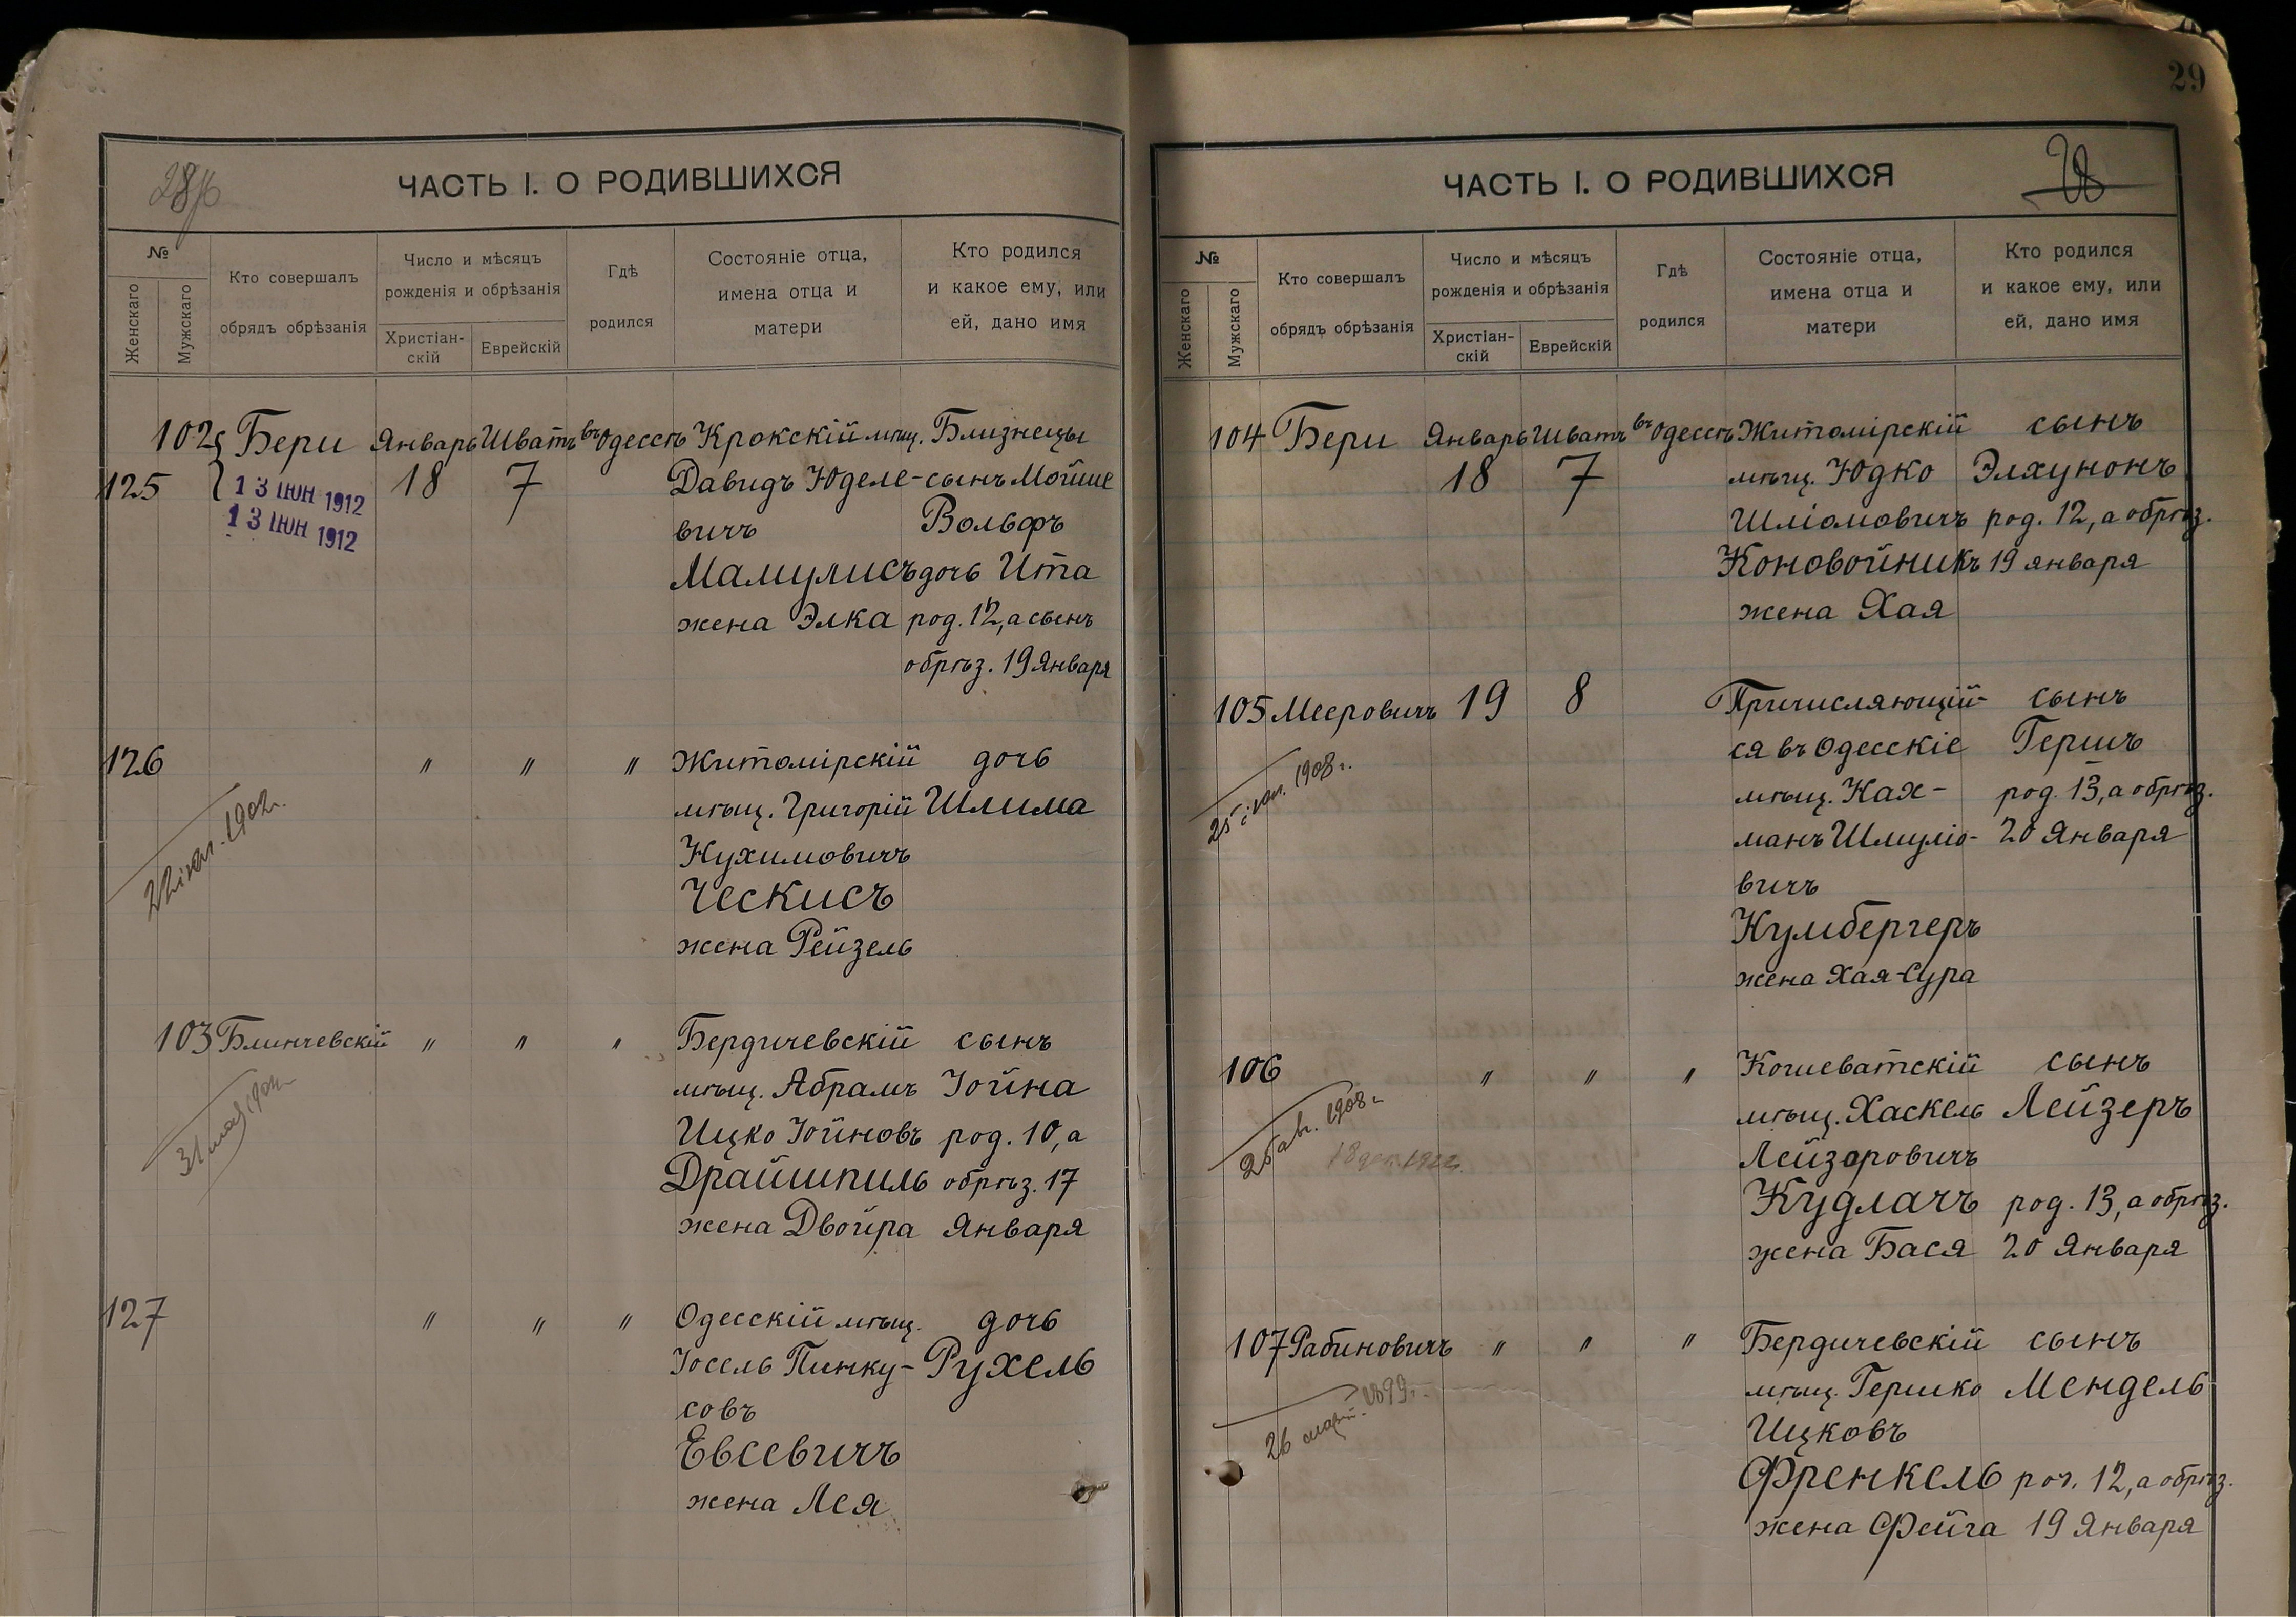 28об
ЧАСТЬ I. О РОДИВШИХСЯ
№
Женскаго
Мужскаго
Кто совершалъ
обрядъ обрѣзанія
Число и мѣсяцъ
рожденія и обрѣзанія
Христіан-
скій
Еврейскій
Гдѣ
родился
Состояніе отца,
имена отца и
матери
Кто родился
и какое ему, или
ей, дано имя
102 Бери Январь Шватъ въ Одессѣ Крокскій мѣщ. Близнецы
125 13 ІЮН 1912 18 7 Давидъ Юделе- сынъ Мойше
13 ІЮН 1912 вичъ Вольфъ
Мамулисъ дочь Ита
жена Элка род. 12, а сынъ
обрѣз. 19 Января
126 " " " Житомірскій дочь
мѣщ. Григорій Шлима
22 іюл. 1902 г. Нухимовичъ
Ческисъ
жена Рейзель
103 Блинчевскій " " " Бердичевскій сынъ
мѣщ. Абрамъ Іойна
31 мая Ицко Іойновъ род. 10, а
Драйшпиль обрѣз. 17
жена Двойра Января
127 " " " Одесскій мѣщ. дочь
Іосель Пинку- Рухель
совъ
Евсевичъ
жена Лея
29
28
ЧАСТЬ I. О РОДИВШИХСЯ
№
Женскаго
Мужскаго
Кто совершалъ
обрядъ обрѣзанія
Число и мѣсяцъ
рожденія и обрѣзанія
Христіан-
скій
Еврейскій
Гдѣ
родился
Состояніе отца,
имена отца и
матери
Кто родился
и какое ему, или
ей, дано имя
104 Бери Январь Шватъ въ Одессѣ Житомірскій сынъ
18 7 мѣщ. Юдко Элхунонъ
Шліомовичъ род. 12, а обрѣз.
Коновойникъ 19 января
жена Хая
105 Мееровичъ 19 8 Причисляющій- сынъ
ся въ Одесскіе Гершъ
25 1908 г. мѣщ. Нах- род. 13, а обрѣз.
манъ Шмуліо- 20 Января
вичъ
Кумбергеръ
жена Хая-Сура
106 " " " Кошеватскій сынъ
25 авг. 1908 г. мѣщ. Хаскель Лейзеръ
Лейзеровичъ
Кудлачъ род. 13, а обрѣз.
жена Бася 20 Января
107 Рабиновичъ " " " Бердичевскій сынъ
26 март. 1899 г. мѣщ. Гершко Мендель
Ицковъ
Френкель род. 12, а обрѣз.
жена Фейга 19 Января